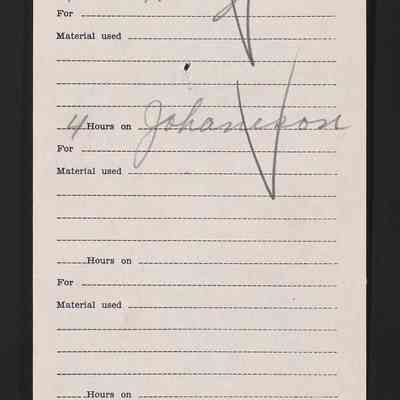 For
Material used
4 Hours on Johannson
For
Material used
Hours on
For
Material used
Hours on